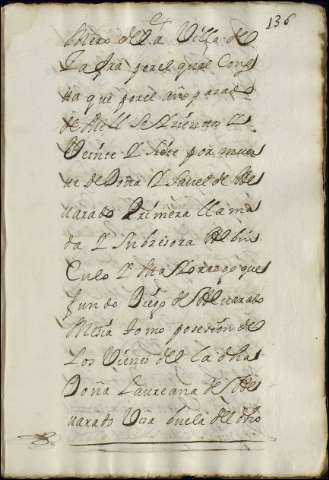 136
bliero de la Villa de
la fra por el qual Cons
ta que por el año passado
de Mill Setecientos y
Veinte y siete por muer
te de Doña Ysavel de Al
uarado Primera llama
da y Subcesora Al bin
Culo y Maiorazgo que
fundo Diego de Alvarado
Mesia tomo posesion de
Los Vienes del la dha
Doña Laureana de Al
uarado Visa buela del dho